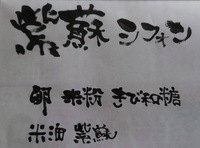 紫蘇シフォン
卵 米粉 きび和糖
米油 紫蘇